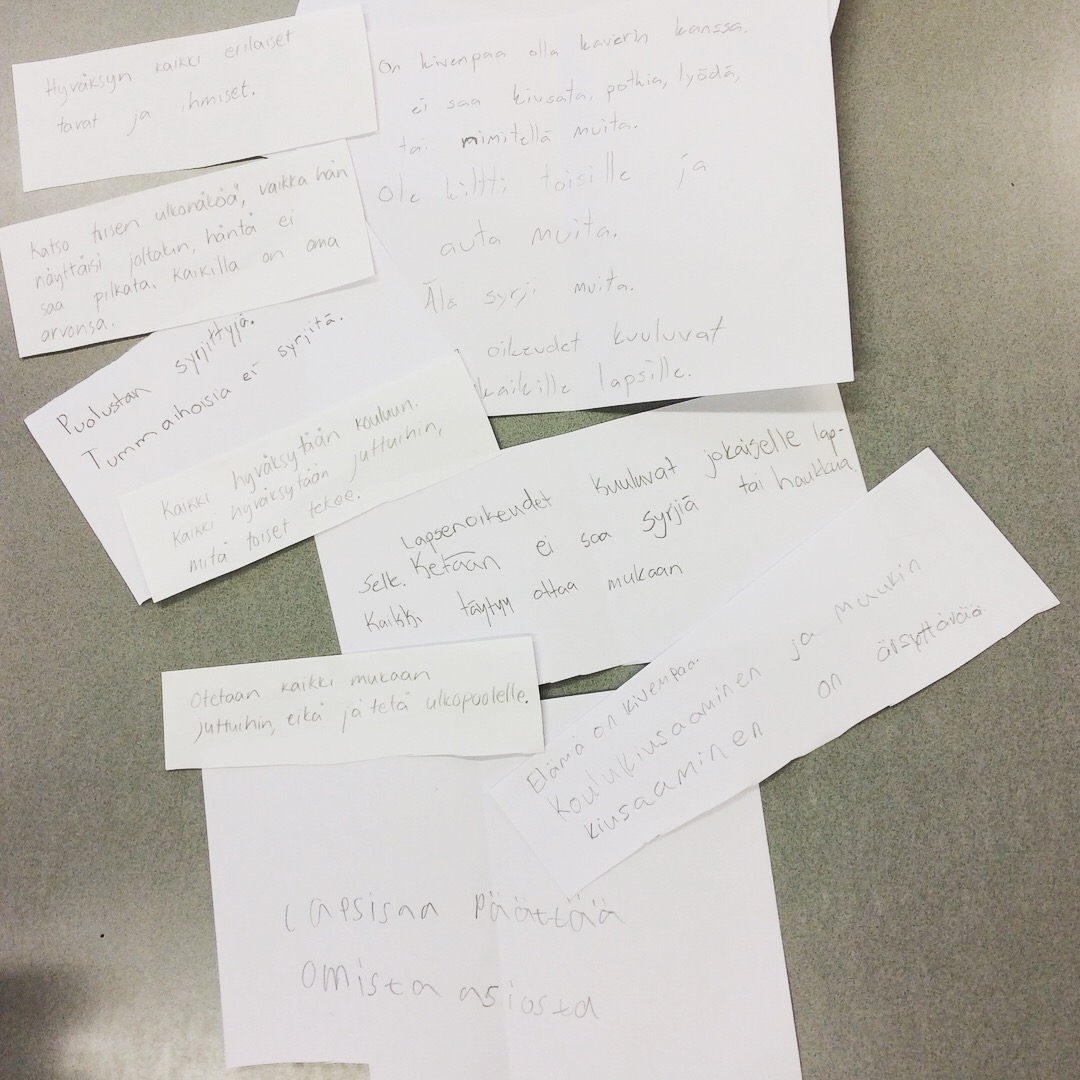 Hyväksyn kaikki erilaiset
tavat ja ihmiset.
Katso toisen ulkonäköä, vaikka hän
näyttäisi joltakin, häntä ei
saa pilkata. Kaikilla on oma
arvonsa.
Puolustan syrjittyjä.
Tummaihoisia ei syrjitä.
Kaikki hyväksytään kouluun.
Kaikki hyväksytään juttuihin,
mitä toiset tekee.
On kivenpaa olla kaverin kanssa.
ei saa kiusata, potkia, lyödä,
tai nimitellä muita.
Ole kiltti toisille ja
auta muita.
Äla syrji muita.
oikeudet kuuluvat
kaikille lapsille.
Lapsenoikeudet kuuluvat jokaiselle lap-
selle. Ketään ei saa syrjiä tai haukkua.
Kaikki täytyy ottaa mukaan
Otetaan kaikki mukaan
juttuihin, eikä jätetä ulkopuolelle.
Elämä on kivempaa.
Koulukiusaaminen ja muukin
kiusaaminen on ärsyttävää.
Lapsisaa päättää
omista asiosta